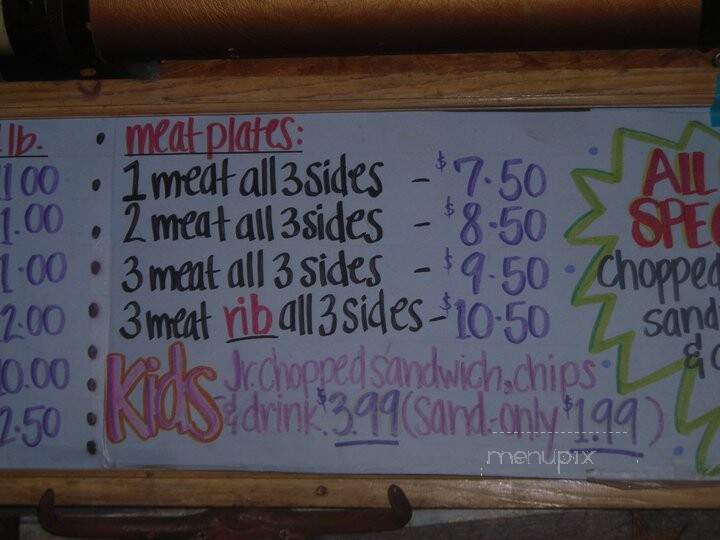 lb.
meat plates:
1 meat all 3 sides - $7.50
2 meat all 3 sides - $8.50
3 meat all 3 sides - $9.50
3 meat rib all 3 sides - $10.50
Kids Jr. chopped sandwich, chips
& drink $3.99 (sand. only $1.99)
1.00
1.00
2.00
0.00
2.50
ALL
SPEC
chopped
sand
&
menupix